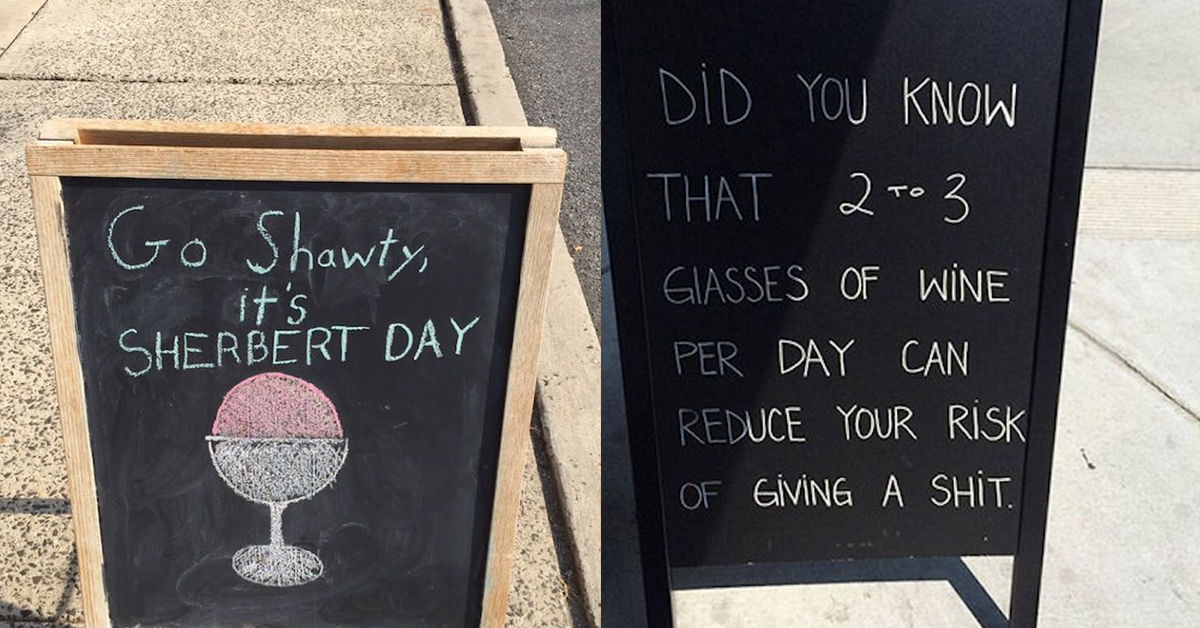 Go Shawty,
it's
SHERBERT DAY
DiD YOU KNOW
THAT 2 TO 3
GLASSES OF WiNE
PER DAY CAN
REDUCE YOUR RiSK
OF GiViNG A SHiT.